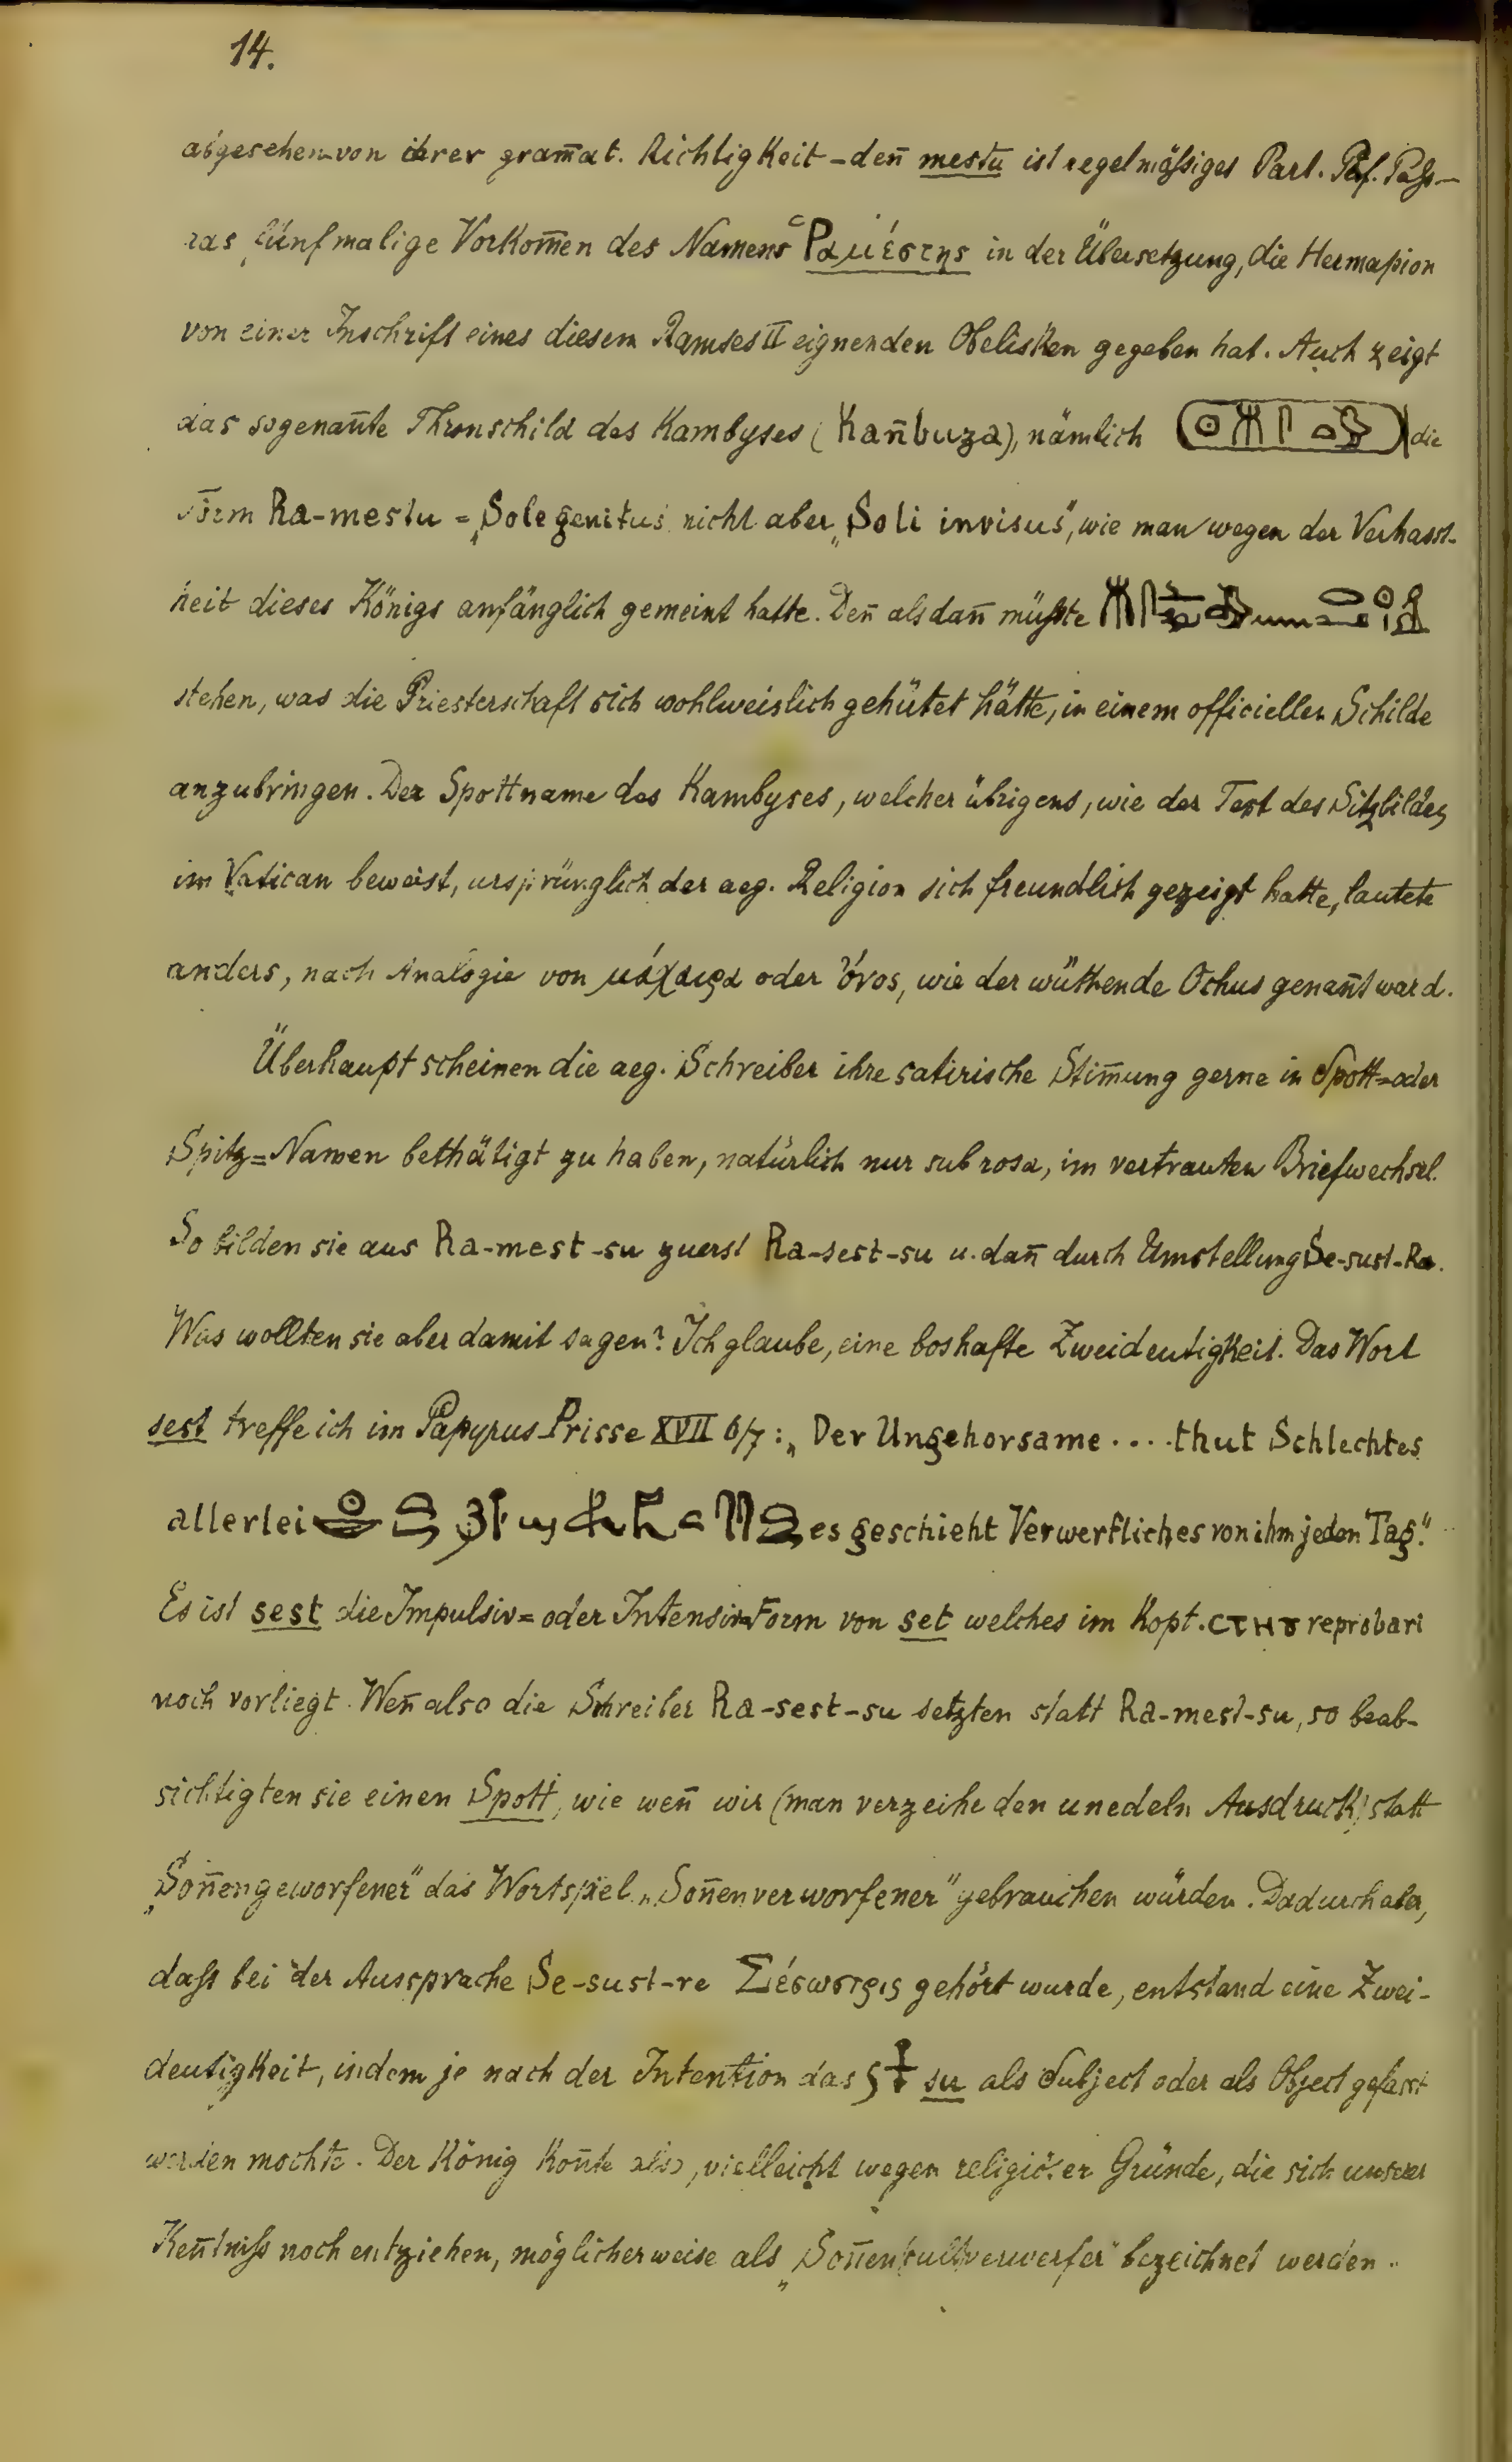 14.
abgesehen von ihrer gram̄at. Richtigkeit – den̄ mestu ist regelmäßiges Part. Perf. Paß. –
das fünfmalige Vorkom̄en des Namens Ῥαμέστης in der Übersetzung, die Hermapion
von einer Inschrift eines diesem Ramses II eignenden Obelisken gegeben hat. Auch zeigt
das sogenan̄te Thronschild des Kambyses (Kan̄buza), nämlich die
Form Ra-mestu = „Sole genitus, nicht aber „Soli invisus“, wie man wegen der Verhasst-
heit dieses Königs anfänglich gemeint hatte. Den̄ alsdan̄ müßte
stehen, was die Priesterschaft sich wohlweislich gehütet hätte, in einem officiellen Schilde
anzubringen. Der Spottname des Kambyses, welcher übrigens, wie der Text des Sitzbildes
im Vatican beweist, ursprünglich der aeg. Religion sich freundlich gezeigt hatte, lautete
anders, nach Analogie von μάχαιρα oder ὄνος, wie der wüthende Ochus genan̄t ward.
Überhaupt scheinen die aeg. Schreiber ihre satirische Stim̄ung gerne in Spott= oder
Spitz=Namen bethätigt zu haben, natürlich nur sub rosa, im vertrauten Briefwechsel.
So bilden sie aus Ra-mest-su zuerst Ra-sest-su u. dan̄ durch Umstellung Se-sust-Ra.
Was wollten sie aber damit sagen? Ich glaube, eine boshafte Zweideutigkeit. Das Wort
sest treffe ich im Papyrus Prisse XVII 6/7: „Der Ungehorsame .... thut Schlechtes
allerlei es geschieht Verwerfliches von ihm jeden Tag.“
Es ist sest die Impulsiv= oder Intensiv=Form von set welches im Kopt. ⲥⲧⲏⲩ reprobari
noch vorliegt. Wen̄ also die Schreiber Ra-sest-su setzten statt Ra-mest-su, so beab-
sichtigten sie einen Spott, wie wen̄ wir (man verzeihe den unedeln Ausdruck) statt
„Son̄engeworfener“ das Wortspiel „Son̄enverworfener“ gebrauchen würden. Dadurch aber,
daß bei der Aussprache Se-sust-re Σέσωστρις gehört wurde, entstand eine Zwei-
deutigkeit, indem je nach der Intention das su als Subject oder als Object gefasst
werden mochte. Der König kon̄te also, vielleicht wegen religiöser Gründe, die sich unserer
Ken̄tniß noch entziehen, möglicherweise als „Son̄enkultverwerfer“ bezeichnet werden.